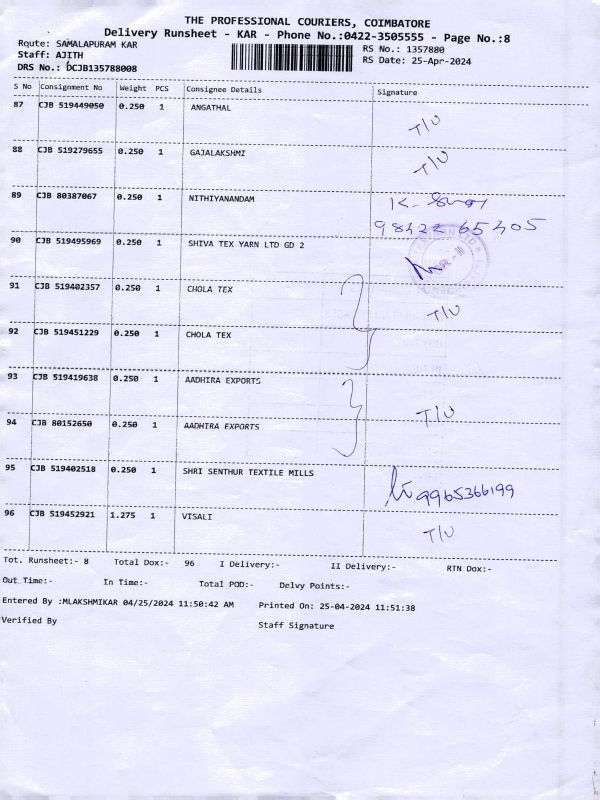 THE PROFESSIONAL COURIERS, COIMBATORE
Delivery Runsheet - KAR - Phone No.:0422-3505555 - Page No.:8
Rqute: SAMALAPURAM KAR
RS No.: 1357880
Staff: AJITH
RS Date: 25-Apr-2024
DRS No.: DCJB135788008
S No Consignment No Weight PCS Consignee Details Signature
87 CJB 519449050 0.250 1 ANGATHAL T/U
88 CJB 519279655 0.250 1 GAJALAKSHMI T/U
89 CJB 80387067 0.250 1 NITHIYANANDAM K.
98422 65405
90 CJB 519495969 0.250 1 SHIVA TEX YARN LTD GD 2
91 CJB 519402357 0.250 1 CHOLA TEX T/U
92 CJB 519451229 0.250 1 CHOLA TEX
93 CJB 519419638 0.250 1 AADHIRA EXPORTS T/U
94 CJB 80152650 0.250 1 AADHIRA EXPORTS
95 CJB 519402518 0.250 1 SHRI SENTHUR TEXTILE MILLS 9965366199
96 CJB 519452921 1.275 1 VISALI T/U
Tot. Runsheet:- 8 Total Dox:- 96 I Delivery:- II Delivery:- RTN Dox:-
Out Time:- In Time:- Total POD:- Delvy Points:-
Entered By :MLAKSHMIKAR 04/25/2024 11:50:42 AM Printed On: 25-04-2024 11:51:38
Verified By Staff Signature